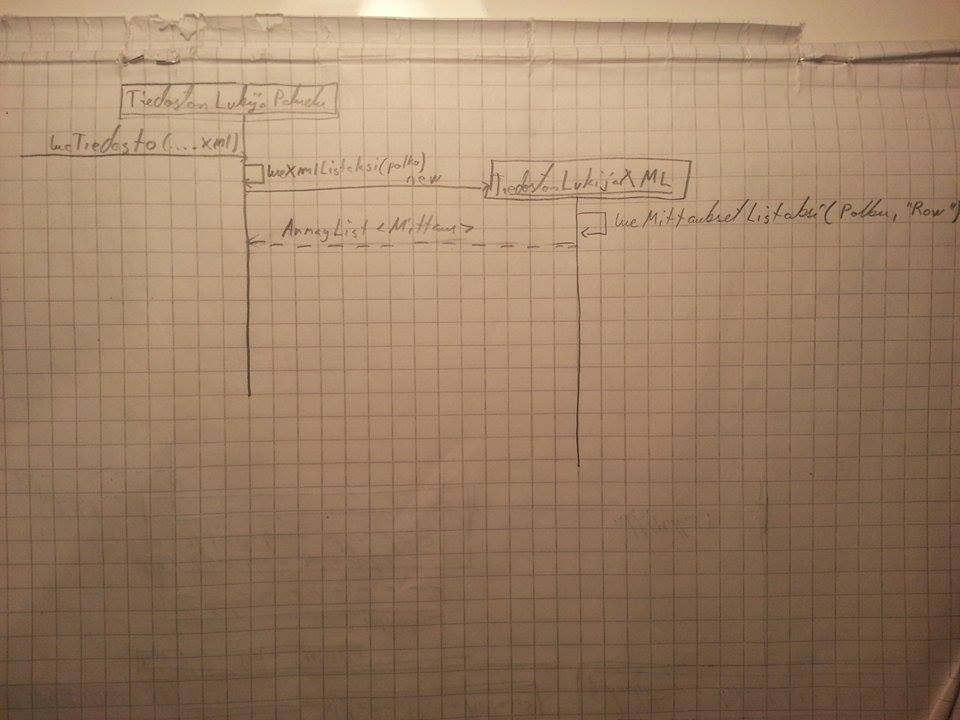 TiedostonLukijaPalvelu
lueTiedosto(....xml)
lueXmlListaksi(polku)
new
TiedostonLukijaXML
lueMittauksetListaksi(Polku, "Row")
ArrayList<Mittaus>